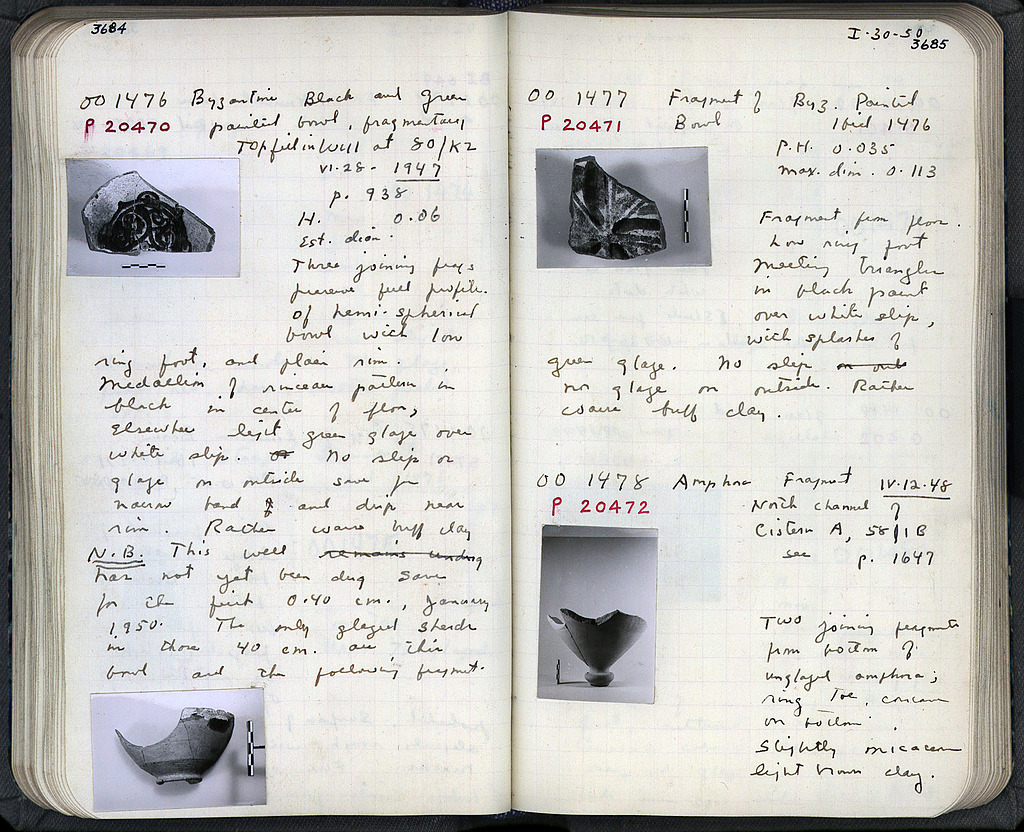 3684
OO 1476 Byzantine Black and green
P 20470 painted bowl, fragmentary
Top fill in Well at 80/KZ
VI-28-1947
p. 938
H. 0.06
Est. diam.
Three joining frags
preserve full profile.
of hemi-spherical
bowl with low
ring foot, and plain rim.
Medallion of rinceau pattern in
black in center of floor,
Elsewhere light green glaze over
white slip. No slip or
glaze on outside save for
narrow band and drip near
rim. Rather coarse buff clay
N.B. This well remains undug
has not yet been dug save
for the first 0.40 cm., January
1950. The only glazed sherds
in those 40 cm. are this
bowl and the following fragment.
I-30-50
3685
OO 1477 Fragment of Byz. Painted
P 20471 Bowl Ibid 1476
P.H. 0.035
max. dim. 0.113
Fragment from floor.
Low ring foot
Meeting triangles
in black paint
over white slip,
with splashes of
green glaze. No slip or
nor glaze on outside. Rather
coarse buff clay.
OO 1478 Amphora Fragment IV-12-48
P 20472 North channel of
Cistern A, 58/IB
see p. 1647
Two joining fragments
from bottom of
unglazed amphora;
ring toe, concave
on bottom.
Slightly micaceous
light brown clay.